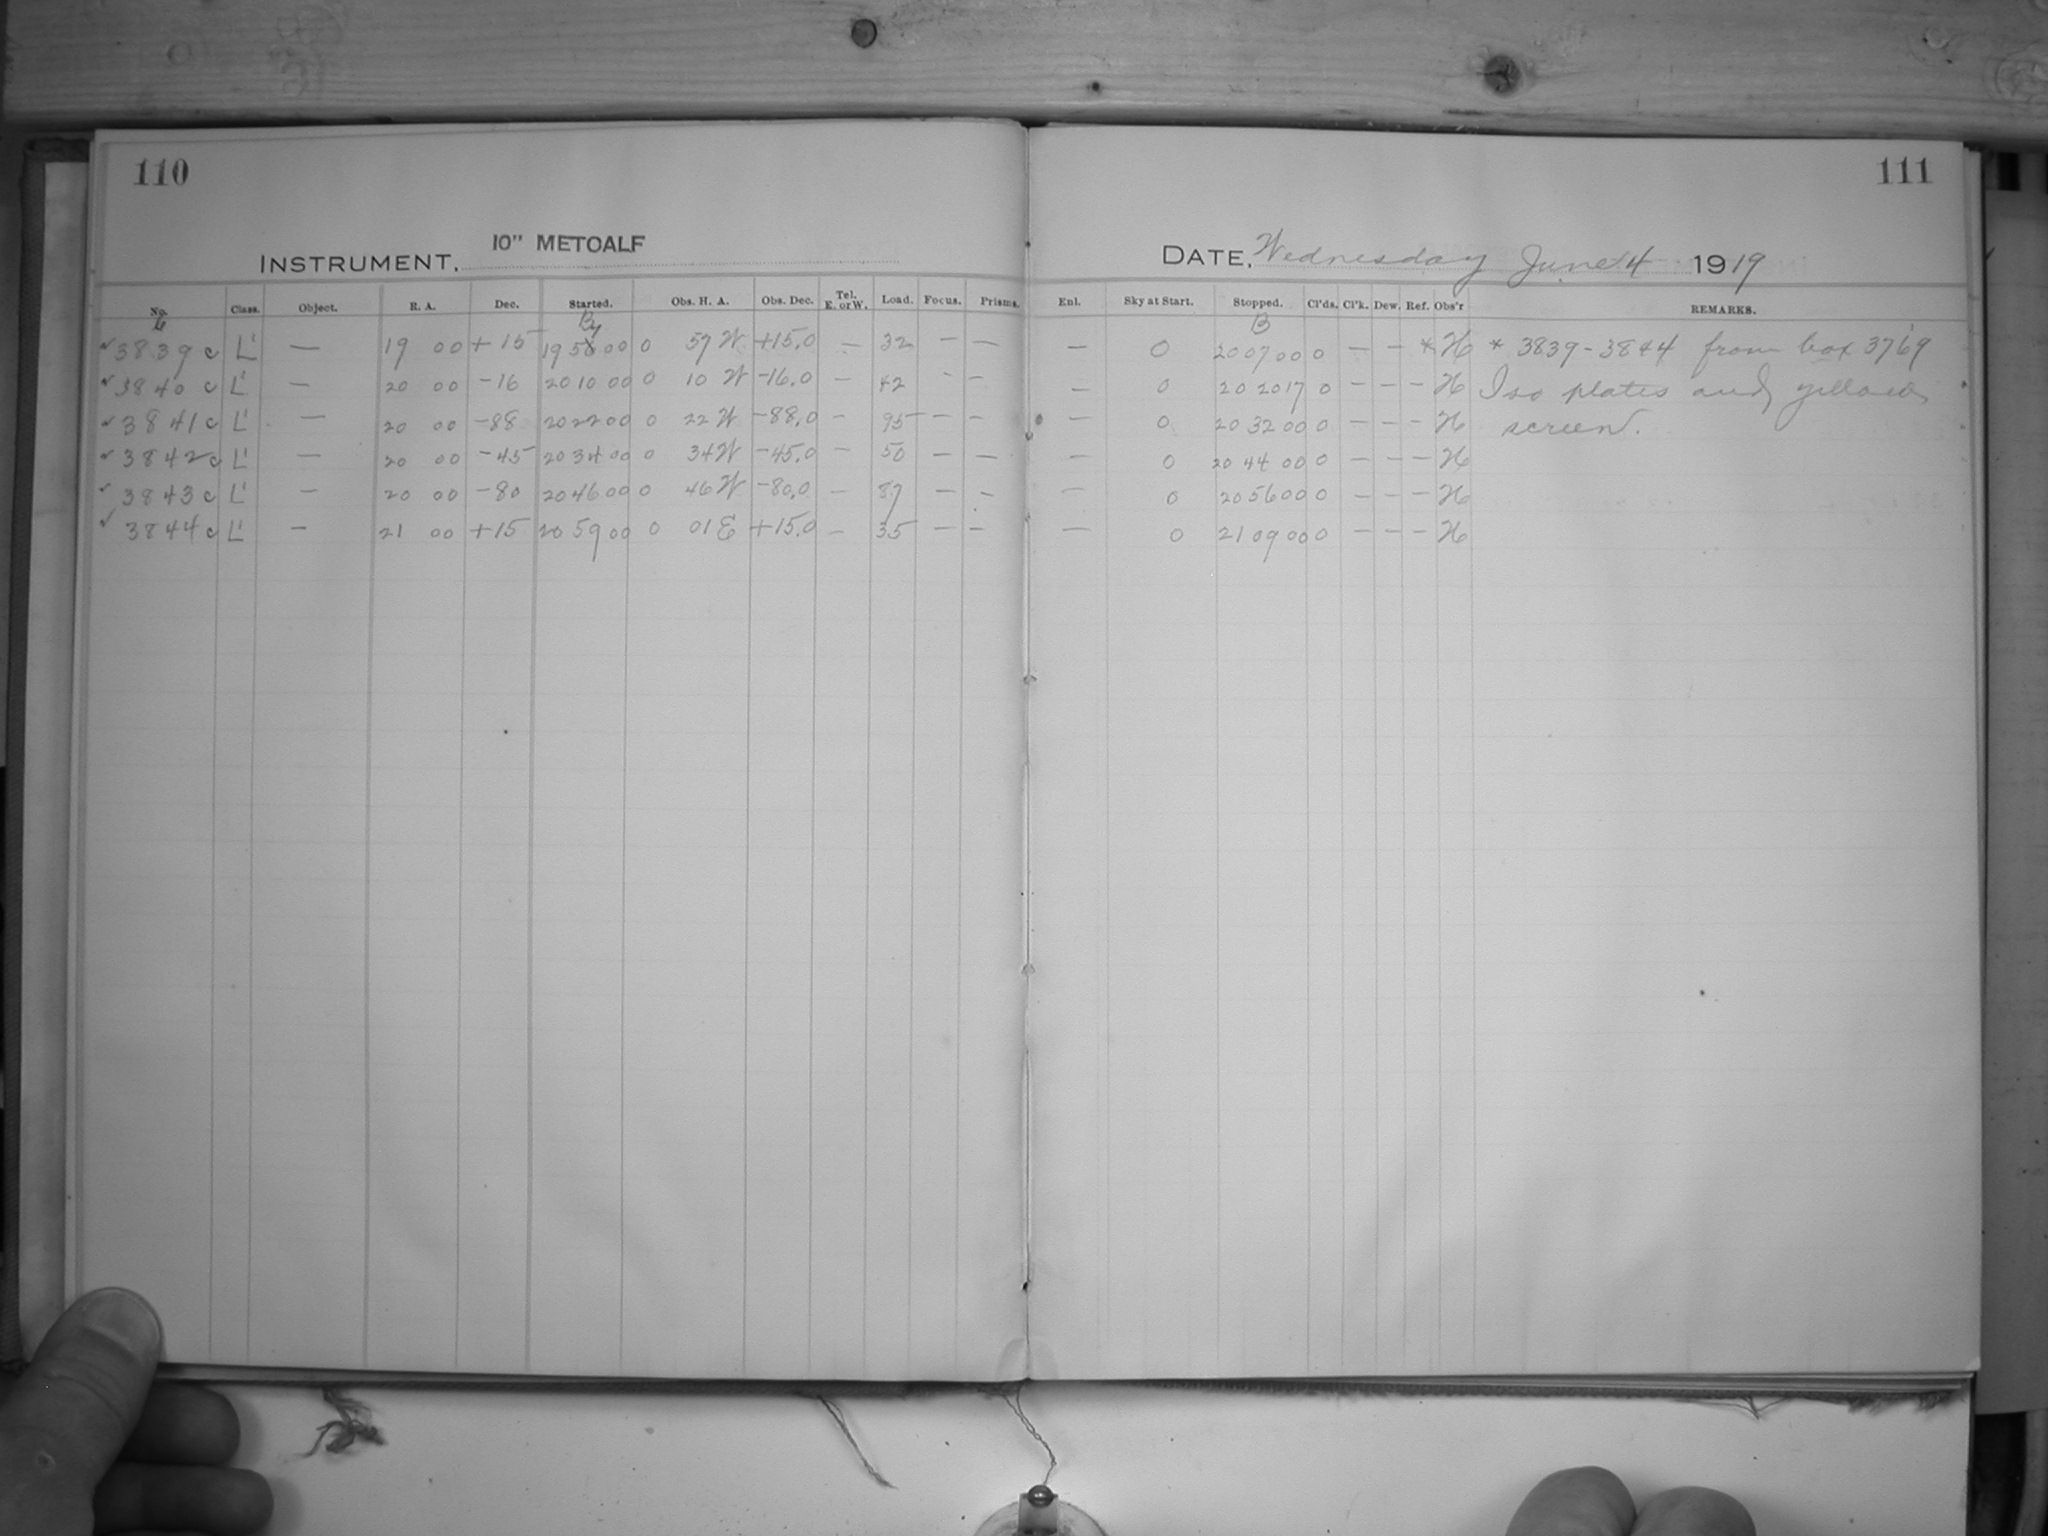 110
111
INSTRUMENT, 10" METCALF
DATE, Wednesday June 4 1919
No. Class. Object. R. A. Dec. Started. Obs. H. A. Obs. Dec. Tel. E. or W. Load. Focus. Prisms. Enl. Sky at Start. Stopped. Cl'ds. Cl'k. Dew. Ref. Obs'r REMARKS.
3839 c L' — 19 00 +15 19 57 00 0 57 W +15.0 — 32 — — — 0 20 07 00 0 — — * H * 3839-3844 from box 3769
3840 c L' — 20 00 -16 20 10 00 0 10 W -16.0 — 42 - — — 0 20 20 17 0 — — — H Iso plates and yellow
3841 c L' — 20 00 -88 20 22 00 0 22 W -88.0 — 95 — — — 0 20 32 00 0 — — — H screen.
3842 c L' — 20 00 -45 20 34 00 0 34 W -45.0 — 50 — — — 0 20 44 00 0 — — — H
3843 c L' — 20 00 -80 20 46 00 0 46 W -80.0 — 87 — — — 0 20 56 00 0 — — — H
3844 c L' — 21 00 +15 20 59 00 0 01 E +15.0 — 35 — — — 0 21 09 00 0 — — — H